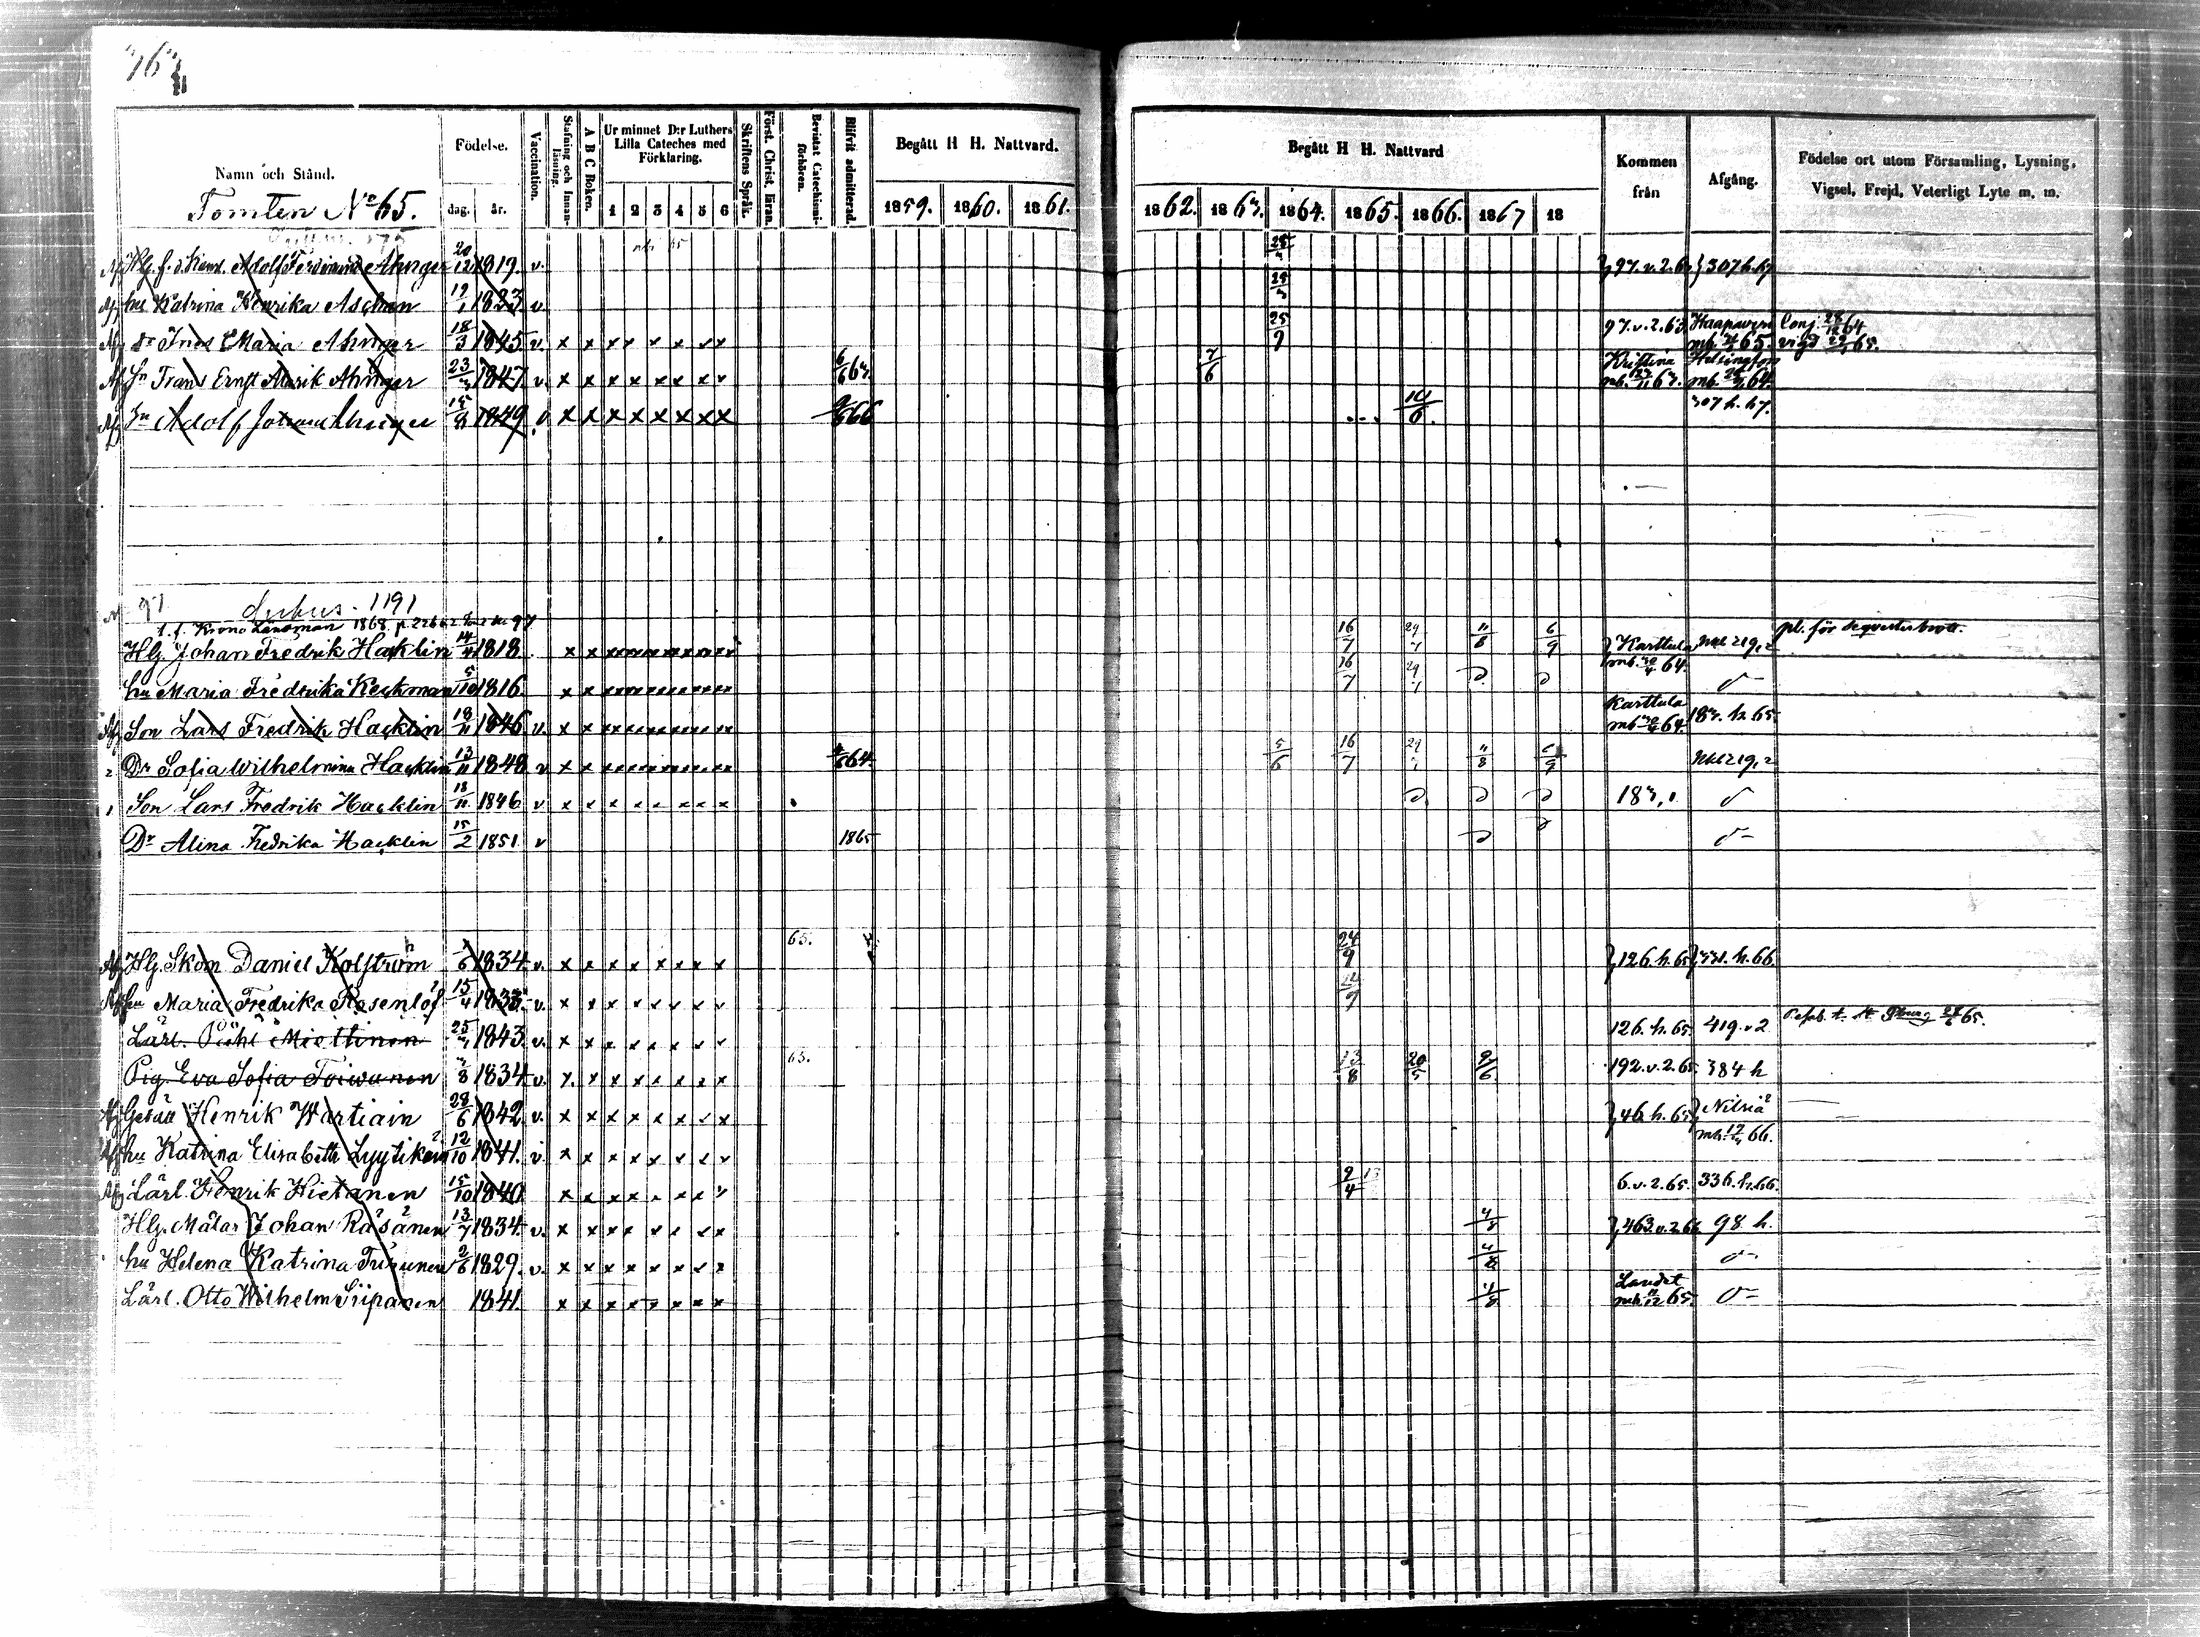 Namn och Stånd.
Tomten No 65.
Födelse.
dag. år.
Vaccination.
Stafning och Innan-läsning.
A B C Boken.
Ur minnet D:r Luthers
Lilla Cateches med
Förklaring.
1 2 3 4 5 6
Skriftens Språk.
Först. Christ. läran.
Bevistat Catechismi-förhören.
Blifvit admitterad.
Begått H H. Nattvard.
1859. 1860. 1861.
Begått H H. Nattvard
1862. 1863. 1864. 1865. 1866. 1867 18
Kommen
från
Afgång.
Födelse ort utom Församling, Lysning,
Vigsel, Frejd, Veterligt Lyte m. m.
Adolf Ferdinand Ahnger 20/12 1819. v. 307 h. 67
hu Katrina Henrika Aschan 19/1 1823 v
dr Ines Maria Ahnger 18/3 1845. v. x x x x x x x x 25/9 97. v. 2. 63. Haapavesi Conj. 28/12 64
mb. 65. vigd 65.
Sn Frans Ernst Alarik Ahnger 23/3 1847. v. x x x x x x x x 6/6 63. 7/6 Kristina Helsingfors
mb. 63. mb. 64.
Sn Adolf Johan Ahnger 15/8 1849. v x x x x x x x x 66 10/6. 307 h. 67.
1191
t. f. Krono Länsman 1868 gl. för
Hlg. Johan Fredrik Hacklin 14/11 1818. x x 16/7 11/8 6/9 Karttula 219, 2
mb. 64.
hu Maria Fredrika Keckman 5/10 1816. x x 16/7
Son Lars Fredrik Hacklin 18/11 1846 v. x x Karttula
mb. 64. 183. h. 65.
Dr Sofia Wilhelmina Hacklin 13/11 1848 v x x 64. 5/6 16/7 11/8 6/9 219, 2
1 Son Lars Fredrik Hacklin 18/11 1846 v x x x x x x x x 183, 1
Dr Alina Fredrika Hacklin 15/2 1851. v 1865
65.
Hlg. Skom Daniel Kolström 1834. v. x x x x x x x x 24/9 126. h. 65 331. h. 66.
hu Maria Fredrika Rosenlöf 15/4 1833. v. x x x x x x x x 24/9
Lärl. Pehr Miettinen 25/7 1843. v. x x x x x x x x 126. h. 65. 419. v 2 65.
Pig. Eva Sofia Toiwanen 1834. v. x. x x x x x x x 65. 13/8 20/5 9/6 192. v. 2. 65. 384 h
Gesäll Henrik Wartiain 28/6 1842. v. x x x x x x x x 46 h. 65 Nilsiä
mb. 66.
hu Katrina Elisabeth Lyytikäin 12/10 1841. v. x x x x x x x x
Lärl. Henrik Hietanen 15/10 1840 x x x x x x x x 2/4 6. v. 2. 65. 336. h. 66.
Hlg. Målar Johan Räsänen 13/7 1834. v. x x x x x x x x 4/8 463 v. 2 66 98 h.
hu Helena Katrina Turunen 2/6 1829. v. x x x x x x x x 4/8
Lärl. Otto Wilhelm Siipanen 1841. x x x x x x x x 4/8 Landet
mb. 11/12 65.